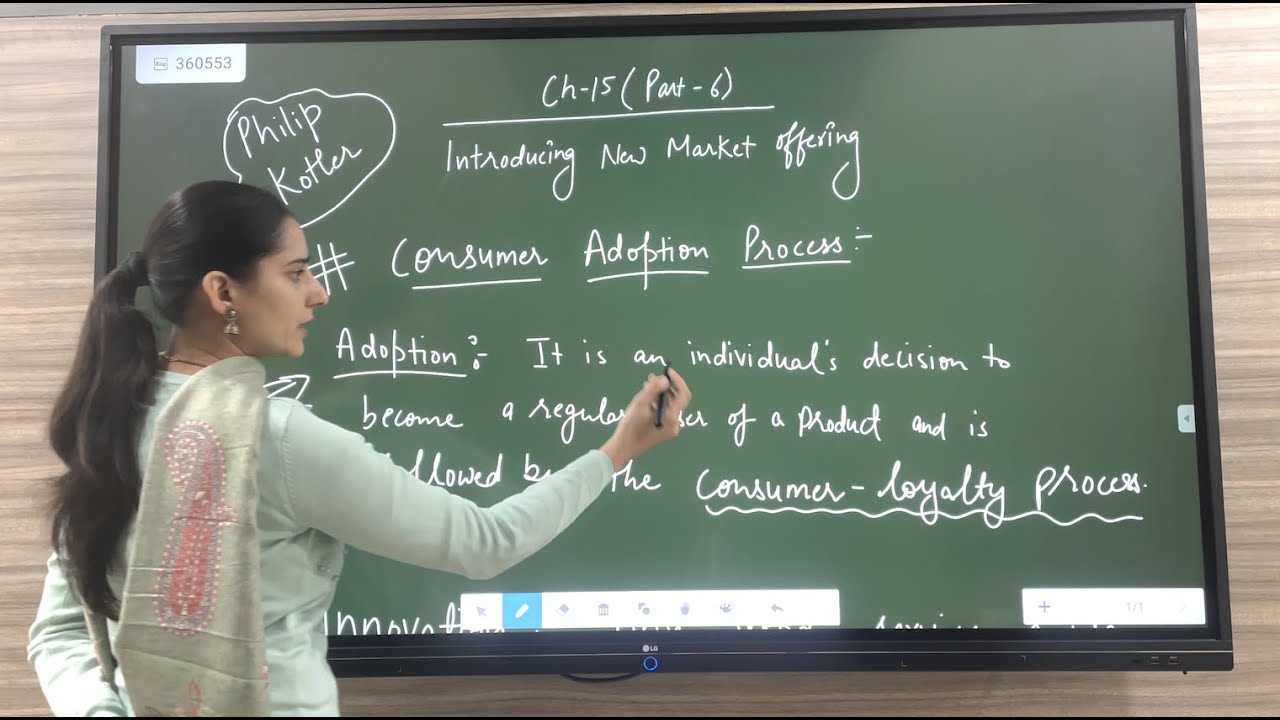 360553
Ch-15 (Part-6)
Philip
Kotler
Introducing New Market offering
# Consumer Adoption Process:-
Adoption:- It is an individual's decision to
become a regular of a product and is
the consumer-loyalty process.
1/1
LG